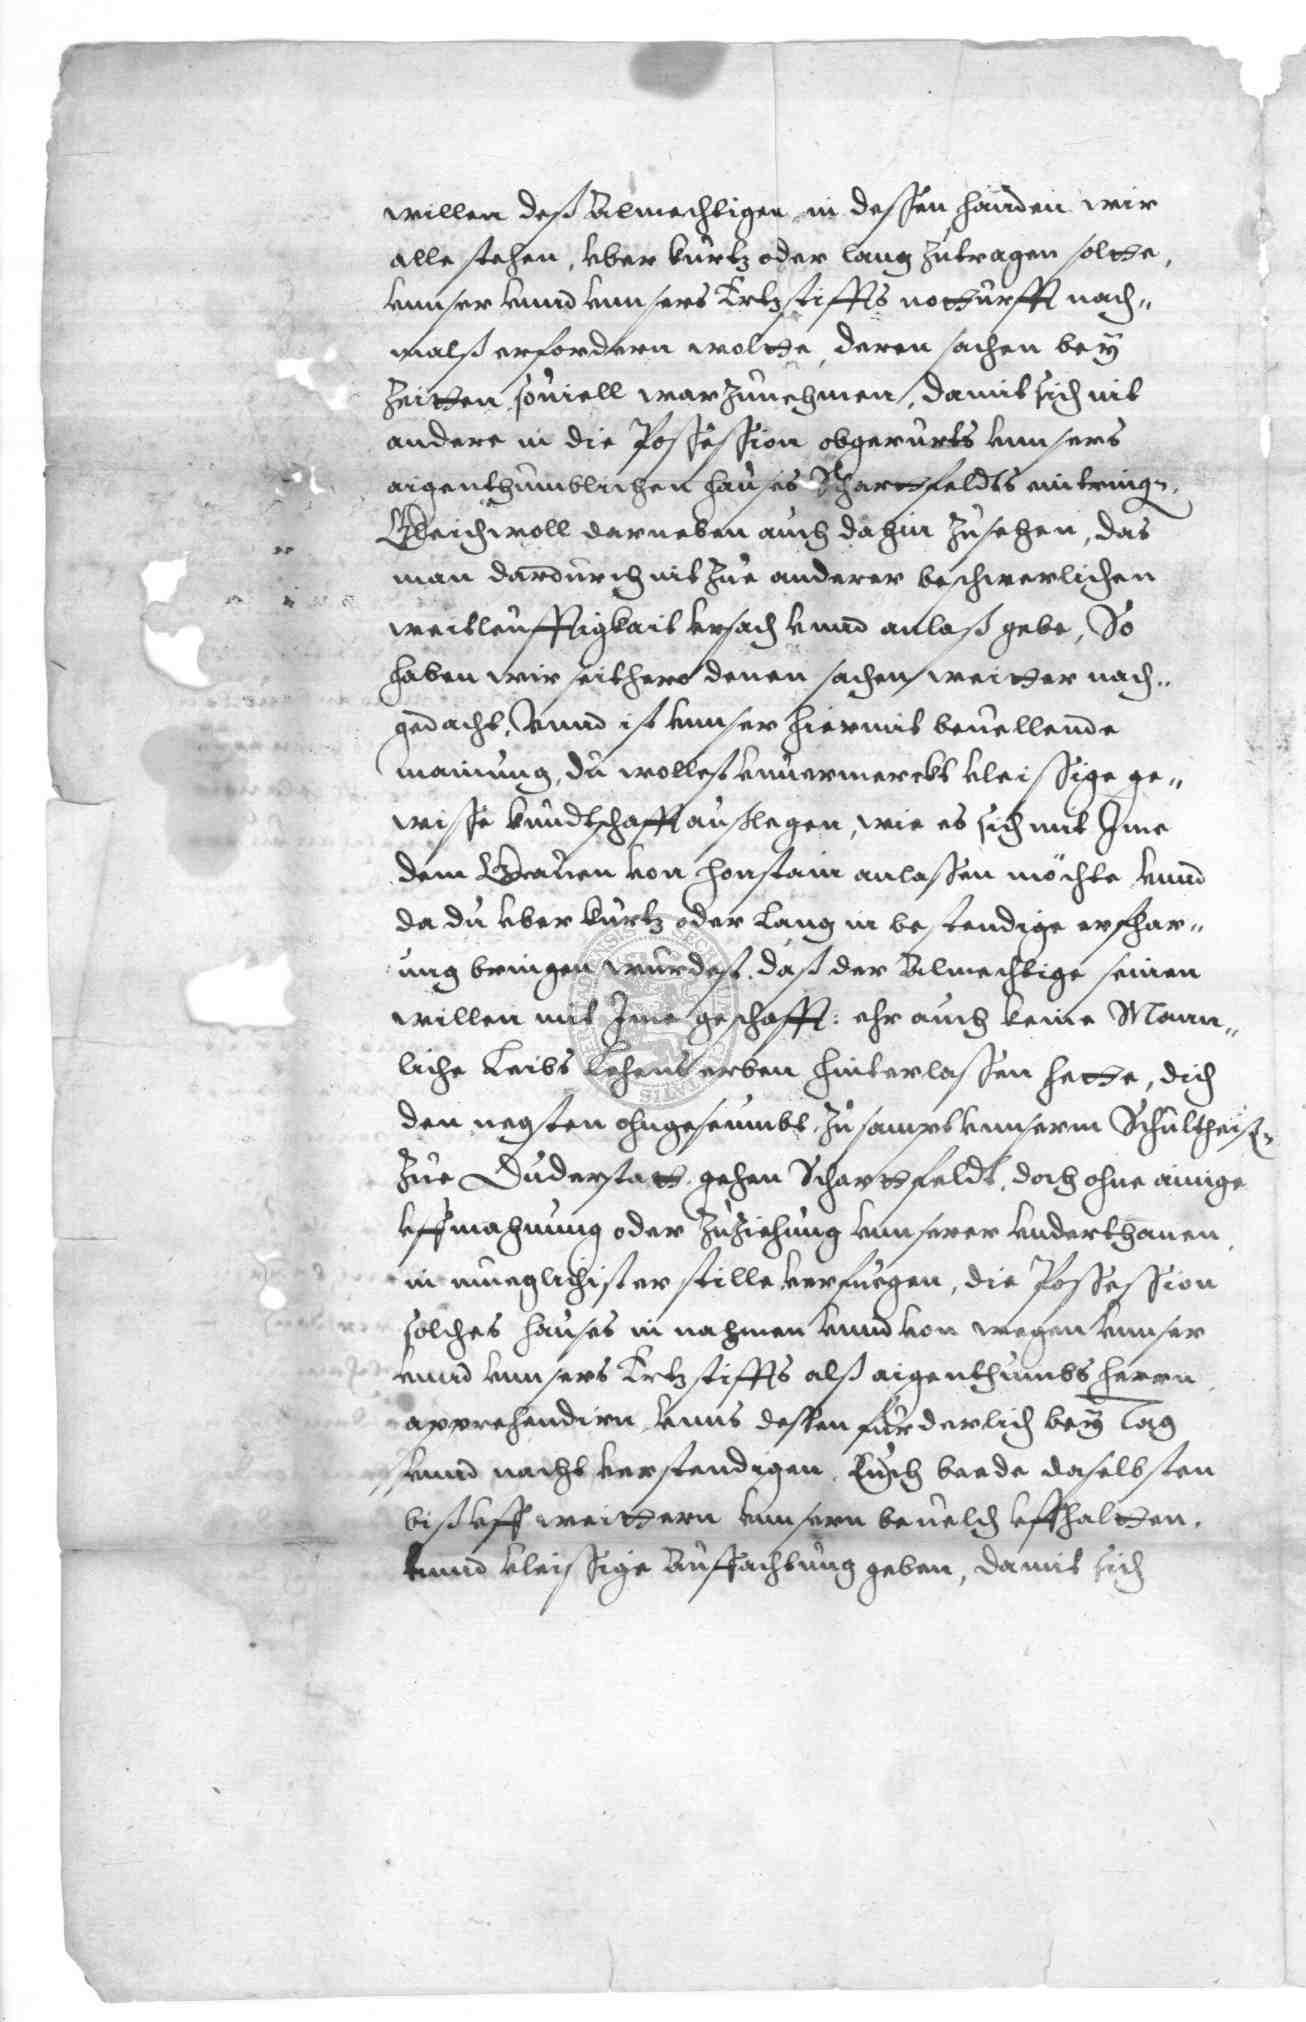 willen deß Almechtigen, in dessen handen wir
alle stehen, vber kurtz oder lang zutragen soltte,
vnnser vnnd vnnsers Ertzstiffts notturfft nach„
malß erfordern woltte, deren sachen bey
Zeitten souiell warzunehmen, damit sich nit
andere in die Possession obgerurts vnnsers
aigenthumblichen hauses Schartfeldts eintring.
Gleichwoll darneben auch dahin zusehen, das
man dardurch nit zue anderer beschwerlichen
weitleuffigkait vrsach vnnd anlaß gebe, So
haben wir seithero denen sachen weitter nach„
gedacht, Vnnd ist vnnser hiermit beuellende
mainung, du wollest vnuermerckt vleissige ge„
wisse kundtschafft außlegen, wie es sich mit Ime
dem Grauen von Honstain anlassen möchte vnnd
da du vber kurtz oder lang in bestendige erfhar„
ung bringen wurdest, daß der Almechtige seinen
willen mit Ime geschafft: ehr auch keine Mann„
liche Leibs Lehens erben hinterlassen hette, dich
den negsten ohngeseumbt, zusampt vnnserm Schultheiß
zue Duderstatt gehen Schartfeldt, doch ohne ainige
vffmahnung oder zuziehung vnnserer vnderthanen,
in mueglichister stille verfuegen, die Possession
solches hauses in nahmen vnnd von wegen vnnser
vnnd vnnsers Ertzstiffts alß aigenthumbs herrn
apprehendirn, vnns dessen fürderlich bey Tag
vnnd nacht verstendigen, Euch beede daselbsten
biß vff weittern vnnsern beuelch vffhaltten,
vnnd vleissige Auffachtung geben, damit sich